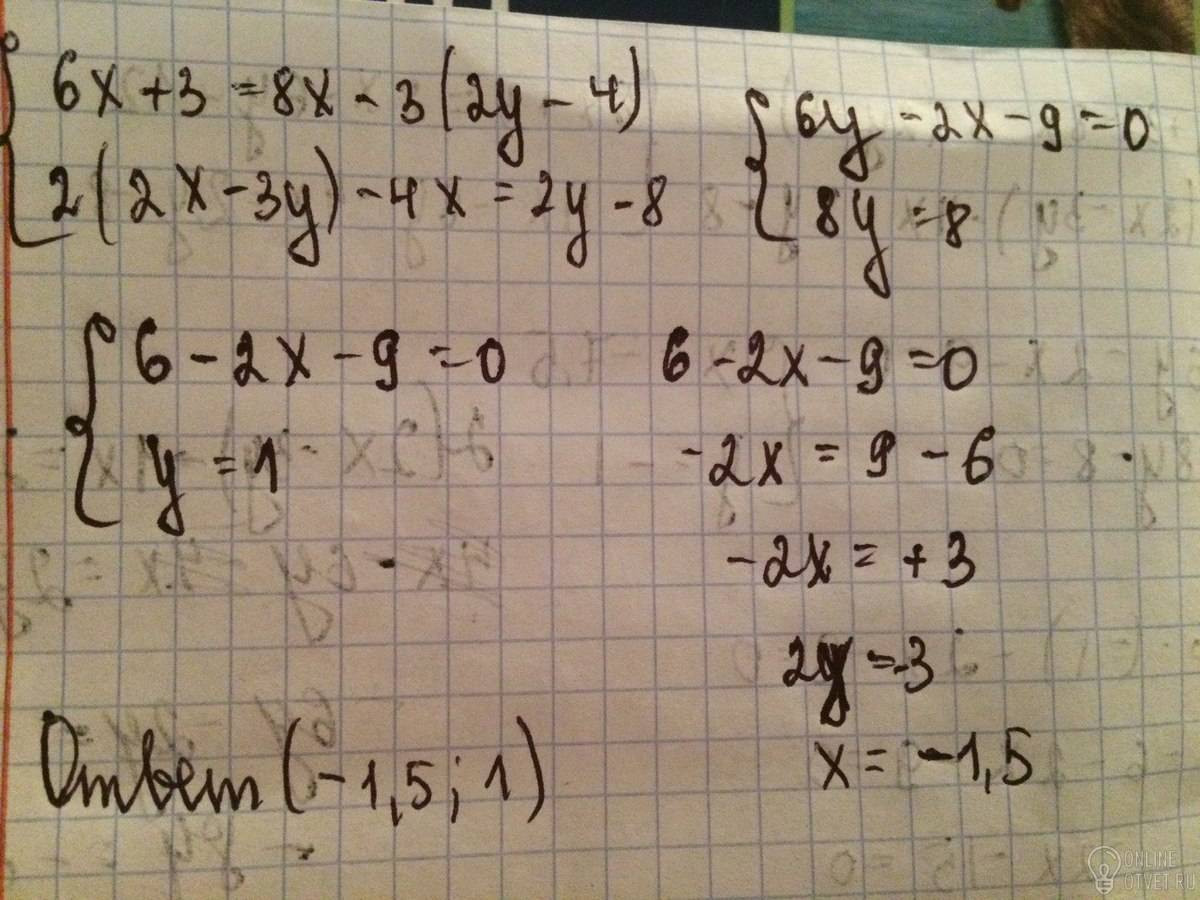 6x + 3 = 8x - 3(2y - 4)
2(2x - 3y) - 4x = 2y - 8
6y - 2x - 9 = 0
8y = 8
6 - 2x - 9 = 0
y = 1
6 - 2x - 9 = 0
-2x = 9 - 6
-2x = +3
2y = -3
x = -1,5
Ответ (-1,5; 1)
ONLINE
OTVET.RU